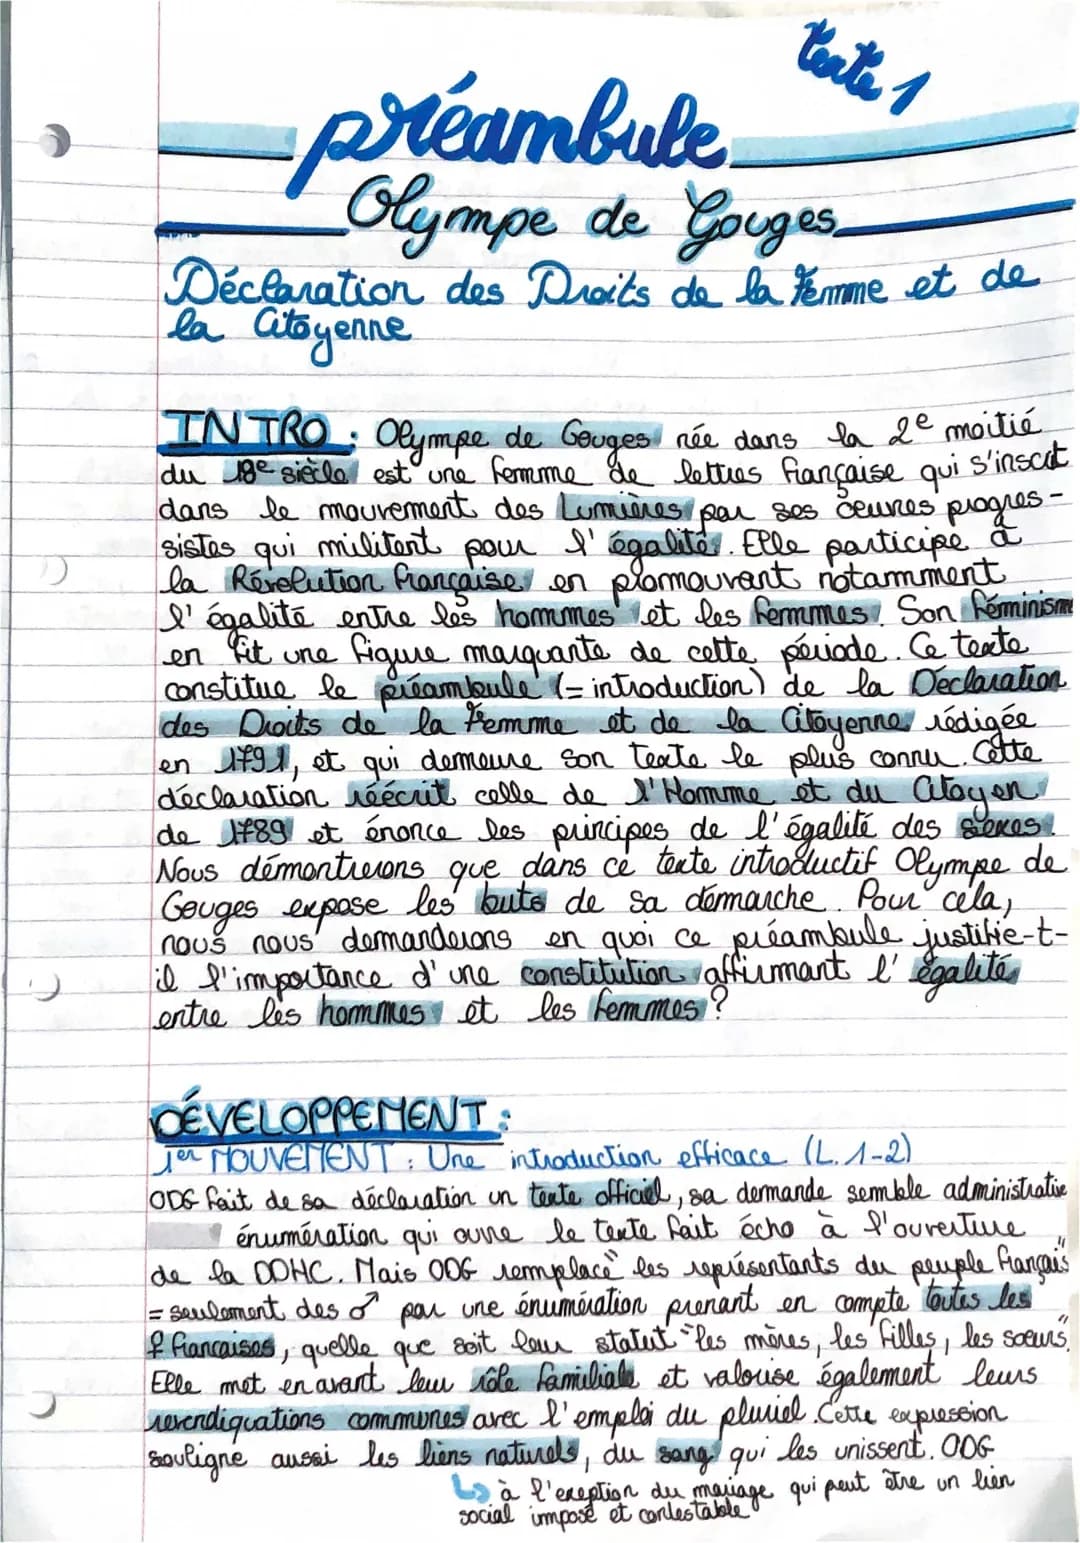 texte 1
préambule
Olympe de Gouges
Déclaration des Droits de la Femme et de
la Citoyenne
INTRO : Olympe de Gouges née dans la 2e moitié
du 18e siècle est une femme de lettres française qui s'inscrit
dans le mouvement des Lumières par ses oeuvres progres-
sistes qui militent pour l'égalité. Elle participe à
la Révolution française en promouvant notamment
l'égalité entre les hommes et les femmes. Son féminisme
en fit une figure marquante de cette période. Ce texte
constitue le préambule (= introduction) de la Déclaration
des Droits de la Femme et de la Citoyenne rédigée
en 1791, et qui demeure son texte le plus connu. Cette
déclaration réécrit celle de l'Homme et du Citoyen
de 1789 et énonce les principes de l'égalité des sexes.
Nous démontrerons que dans ce texte introductif Olympe de
Gouges expose les buts de sa démarche. Pour cela,
nous nous demanderons en quoi ce préambule justifie-t-
il l'importance d'une constitution affirmant l'égalité
entre les hommes et les femmes ?
DÉVELOPPEMENT :
1er MOUVEMENT : Une introduction efficace (L. 1-2)
ODG fait de sa déclaration un texte officiel, sa demande semble administrative
énumération qui ouvre le texte fait écho à l'ouverture
de la DDHC. Mais ODG remplace "les représentants du peuple français"
= seulement des ♂ par une énumération prenant en compte toutes les
♀ françaises, quelle que soit leur statut "les mères, les filles, les soeurs".
Elle met en avant leur rôle familiale et valorise également leurs
revendications communes avec l'emploi du pluriel. Cette expression
souligne aussi les liens naturels, du sang qui les unissent. ODG
↳ à l'exeption du mariage qui peut être un lien
social imposé et contestable